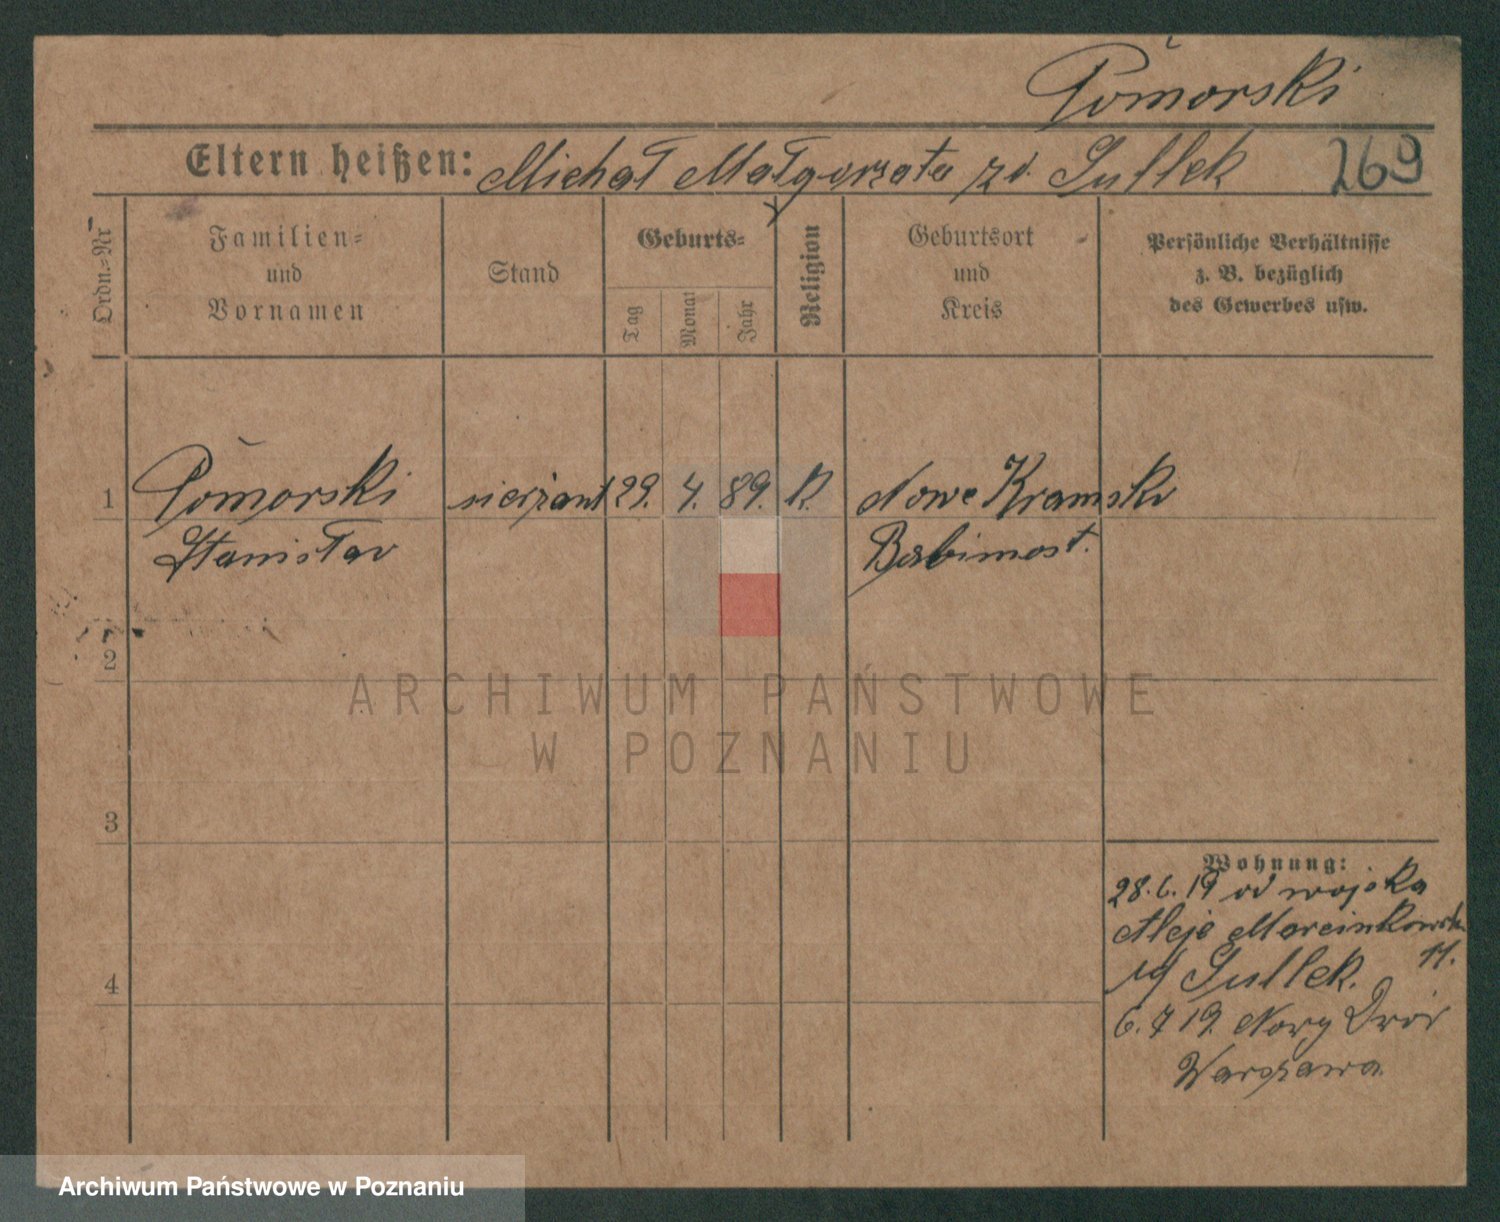 Pomorski
Eltern heißen: Michał Małgorzata zd. Sullek 269
Ordn.-Nr
Familien-
und
Vornamen
Stand
Geburts-
Tag
Monat
Jahr
Religion
Geburtsort
und
Kreis
Persönliche Verhältnisse
z. B. bezüglich
des Gewerbes usw.
1 Pomorski sierżant 29. 4. 89. K. Nowe Kramsko
Stanisław Babimost.
2
3
4
Wohnung:
28.6.19 od wojska
Aleje Marcinkowsk.
11.
Sullek.
6.7 19. Nowy Dwór
Warszawa
ARCHIWUM PAŃSTWOWE
W POZNANIU
Archiwum Państwowe w Poznaniu